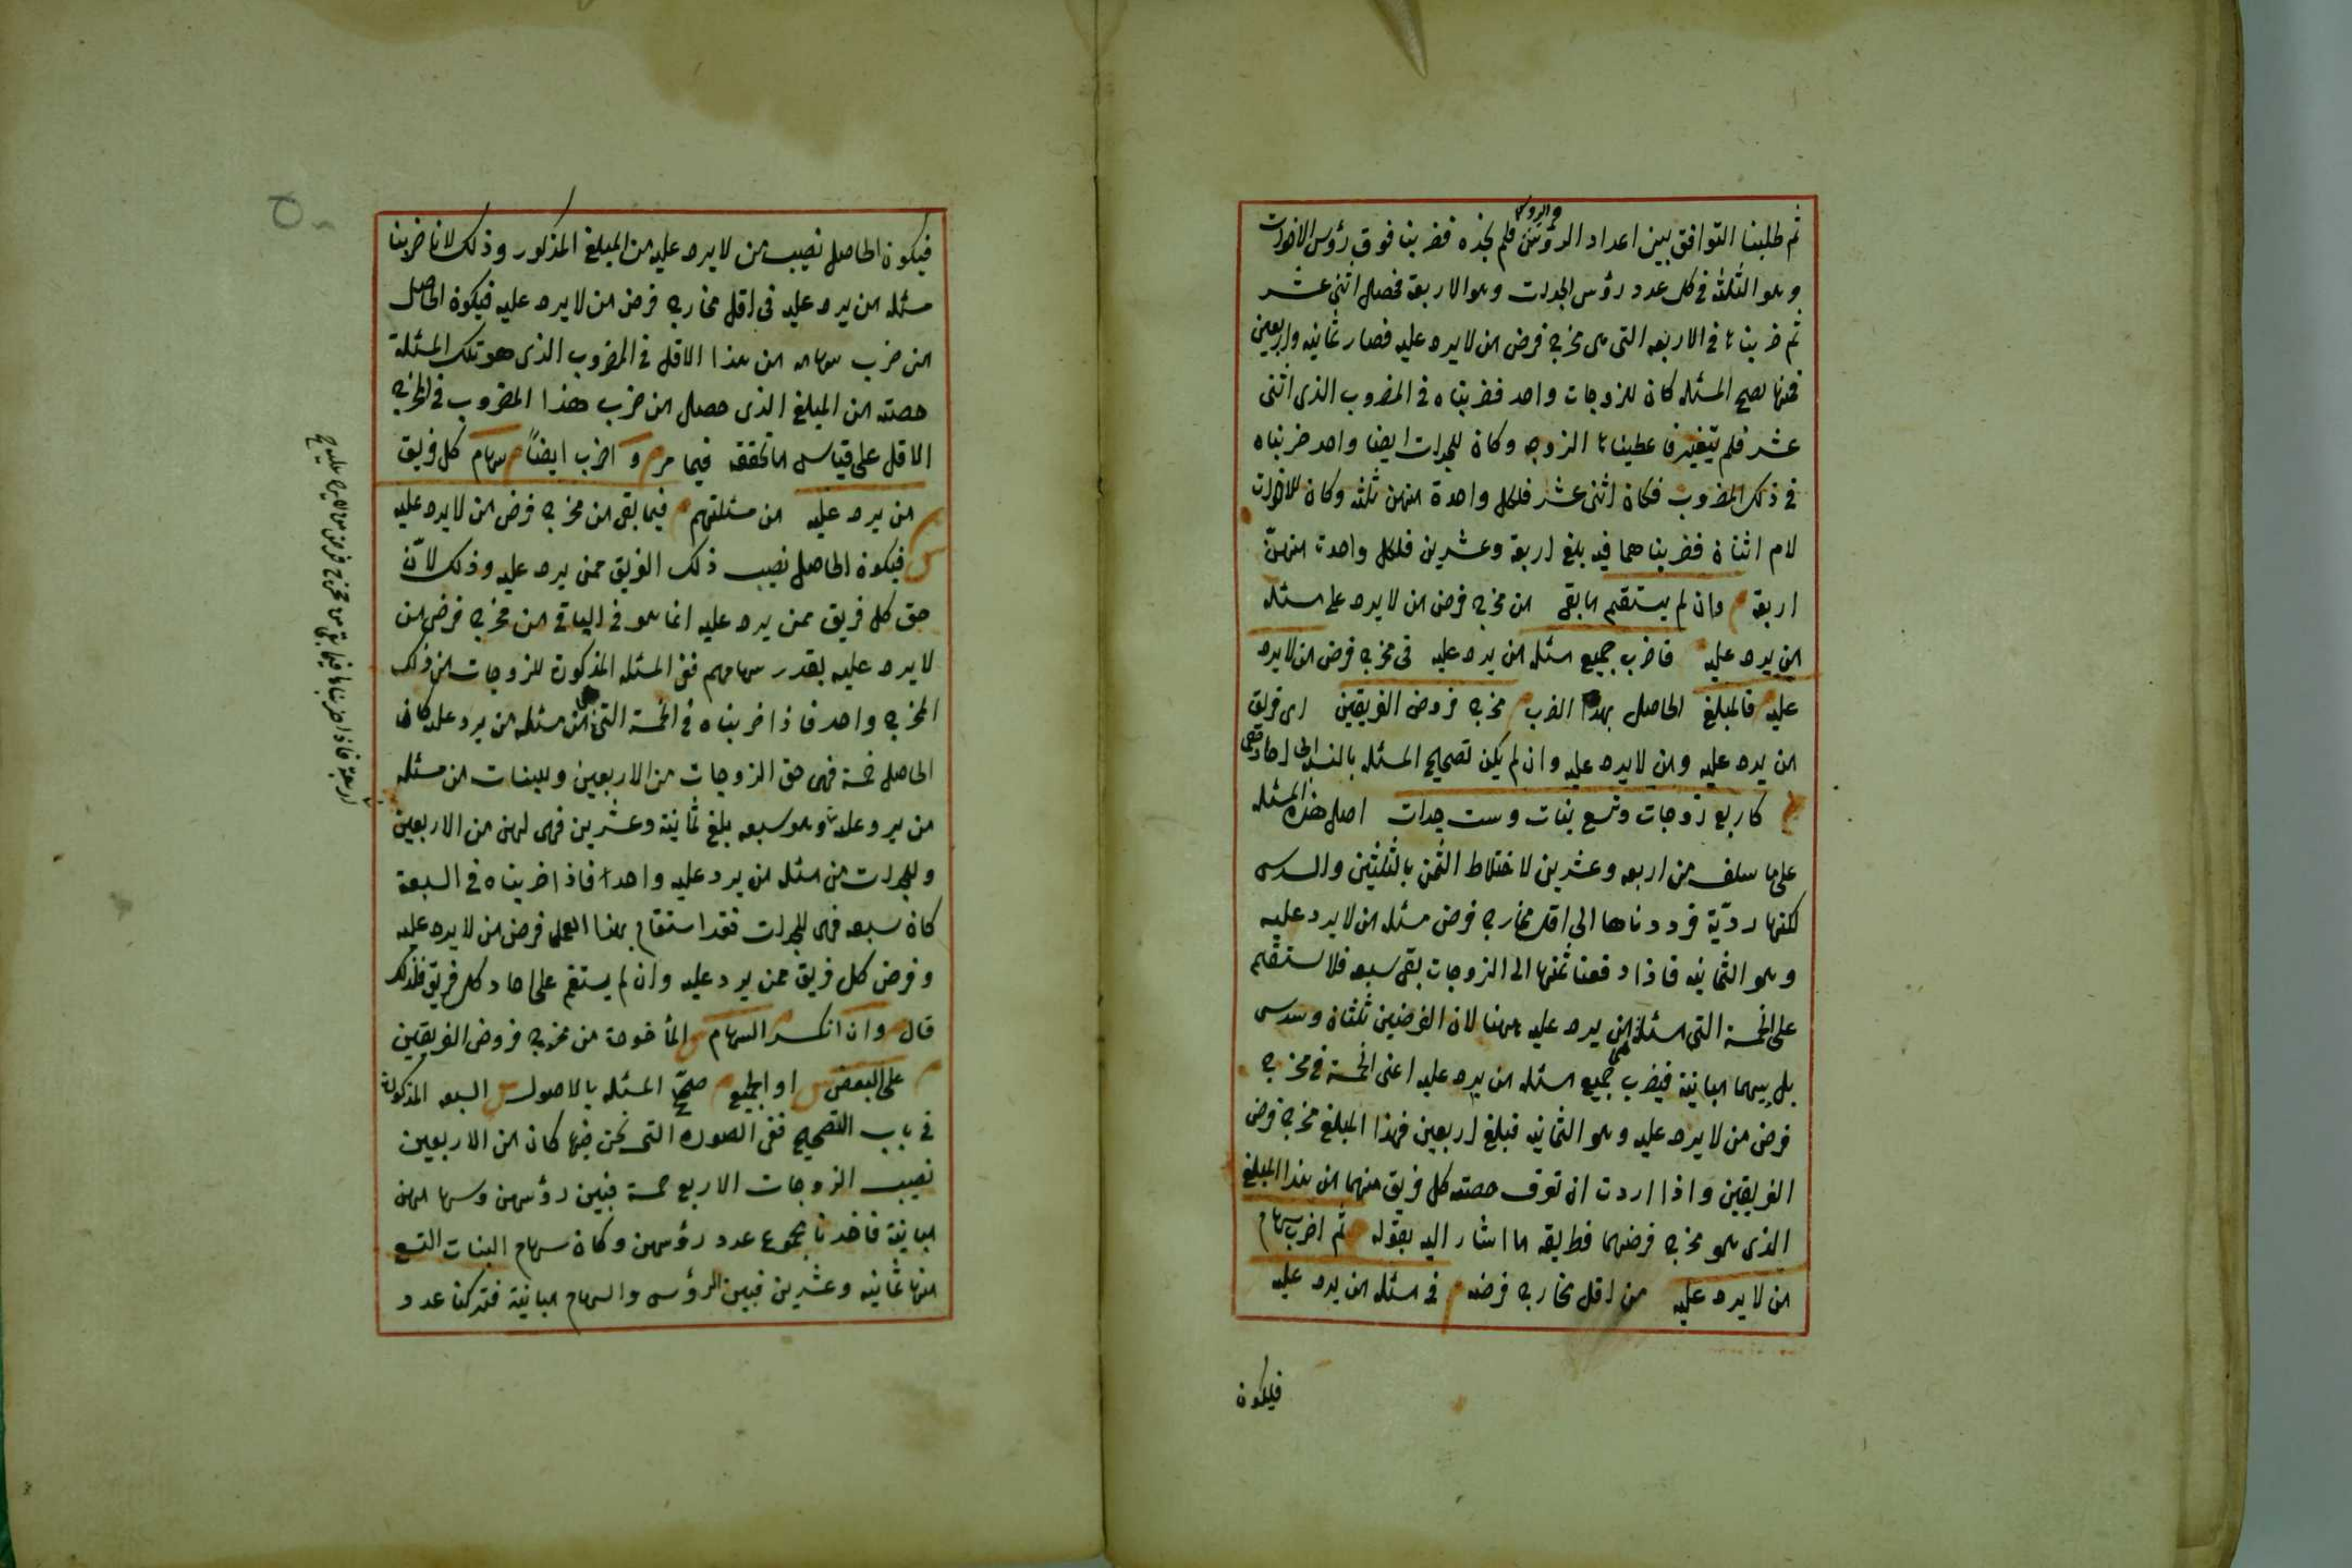 ثم طلبنا التوافق بين اعداد الرؤس والرؤس فلم نجده فضربنا فوق رؤس الاخوات
وهو الثلثة في كل عدد رؤس الجدات وهو الاربعة فحصل اثنى عشر
ثم ضربناها في الاربعه التى هى مخرج فرض من لا يرد عليه فصار ثمانيه واربعين
فمنها تصح المسئله كان للزوجات واحد فضربناه في المضروب الذى اثنى
عشر فلم يتغير فاعطيناها الزوجه وكان للجدات ايضا واحد ضربناه
في ذلك المضروب فكان اثنى عشر فلكل واحدة منهن ثلثه وكان للاخوات
لام اثنان فضربناهما فيه بلغ اربعة وعشرين فلكل واحدة منهنّ
اربعة وان لم يستقم ما بقى من مخرج فرض من لا يرد على مسئله
من يرد عليه فاضرب جميع مسئله من يرد عليه فى مخرج فرض من لا يرد
عليه فالمبلغ الحاصل بهذا الضرب مخرج فروض الفريقين اى فريق
من يرد عليه ومن لا يرد عليه وان لم يكن تصحيح المسئله بالنسبة الى احاد
كاربع زوجات وتسع بنات وست جدات اصل هذه المسئله
على ما سلف من اربعه وعشرين لاختلاط الثمن بالثلثين والسدس
لكنها ردّية فرددناها الى اقل مخارج فرض مسئله من لا يرد عليه
وهو الثمانيه فاذا دفعنا ثمنها الى الزوجات بقى سبعه فلا يستقيم
على الخمسة التى هى مسئلة من يرد عليه ههنا لان الفرضين ثلثان وسدس
بل بينهما المباينة فيضرب جميع مسئله من يرد عليه اعنى الخمسة في مخرج
فرض من لا يرد عليه وهو الثمانيه فبلغ اربعين فهذا المبلغ مخرج فروض
الفريقين واذا اردت ان تعرف حصته كل فريق منهما من هذا المبلغ
الذى هو مخرج فرضهما فطريقه ما اشار اليه بقوله ثم اضرب سهام
من لا يرد عليه من اقل مخارج فرضه في مسئله من يرد عليه
فيكون
فيكون الحاصل نصيب من لا يرد عليه من المبلغ المذكور وذلك لانا ضربنا
مسئله من يرد عليه فى اقل مخارج فرض من لا يرد عليه فيكون الحاصل
من ضرب سهامه من هذا الاقل في المضروب الذى هو تلك المسئلة
حصته من المبلغ الذى حصل من ضرب هذا المضروب في المخرج
الاقل على قياس ما تحققه فيما مر و اضرب ايضاً سهام كل فريق
من يرد عليه من مسئلتهم فيما بقى من مخرج فرض من لا يرد عليه
فيكون الحاصل نصيب ذلك الفريق ممن يرد عليه وذلك لانّ
حق كل فريق ممن يرد عليه انما هو فى الباقي من مخرج فرض من
لا يرد عليه بقدر سهامهم ففى المسئله المذكورة للزوجات من ذلك
المخرج واحد فاذا ضربناه في الخمسة التى هى مسئله من يرد عليه كان
الحاصل خمسة فهى حق الزوجات من الاربعين وللبنات من مسئله
من يرد عليه بلغ ثمانية وعشرين فهى لهن من الاربعين
وللجدات من مسئله من يرد عليه واحد فاذا ضربناه في السبعة
كان سبعه فهى للجدات فقد استقام بهذا العمل فرض من لا يرد عليه
وفرض كل فريق ممن يرد عليه وان لم يستقم على احاد كل فريق فلذلك
قال وان انكسر السهام المأخوذة من مخرج فروض الفريقين
على البعض او الجميع صحّح المسئله بالاصول السبعه المذكورة
في باب التصحيح ففى الصوره التى نحن فيها كان من الاربعين
نصيب الزوجات الاربع خمسة فبين رؤسهن وسهامهن
مباينة فاخذنا مجموع عدد رؤسهن وكان سهام البنات التسع
منها ثمانيه وعشرين فبين الرؤس والسهام مباينة فتركنا عدد